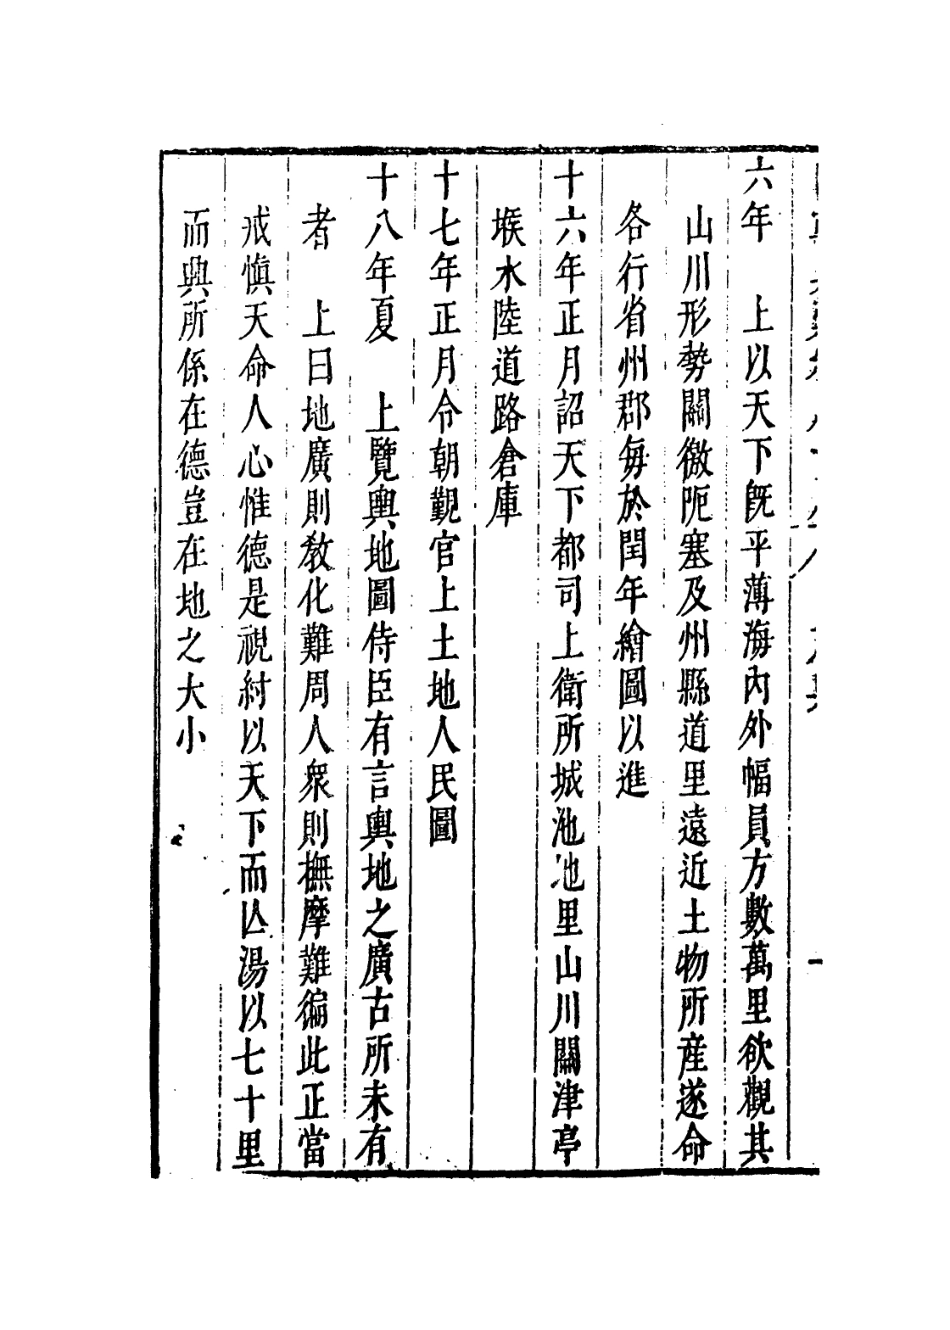 六年　上以天下旣平薄海內外幅員方數萬里欲觀其
山川形勢關徼阨塞及州縣道里遠近土物所產遂命
各行省州郡每於閏年繪圖以進
十六年正月詔天下都司上衛所城池地里山川關津亭
堠水陸道路倉庫
十七年正月令朝覲官上土地人民圖
十八年夏　上覽輿地圖侍臣有言輿地之廣古所未有
者　上曰地廣則教化難周人衆則撫摩難徧此正當
戒慎天命人心惟德是視紂以天下而亾湯以七十里
而興所係在德豈在地之大小